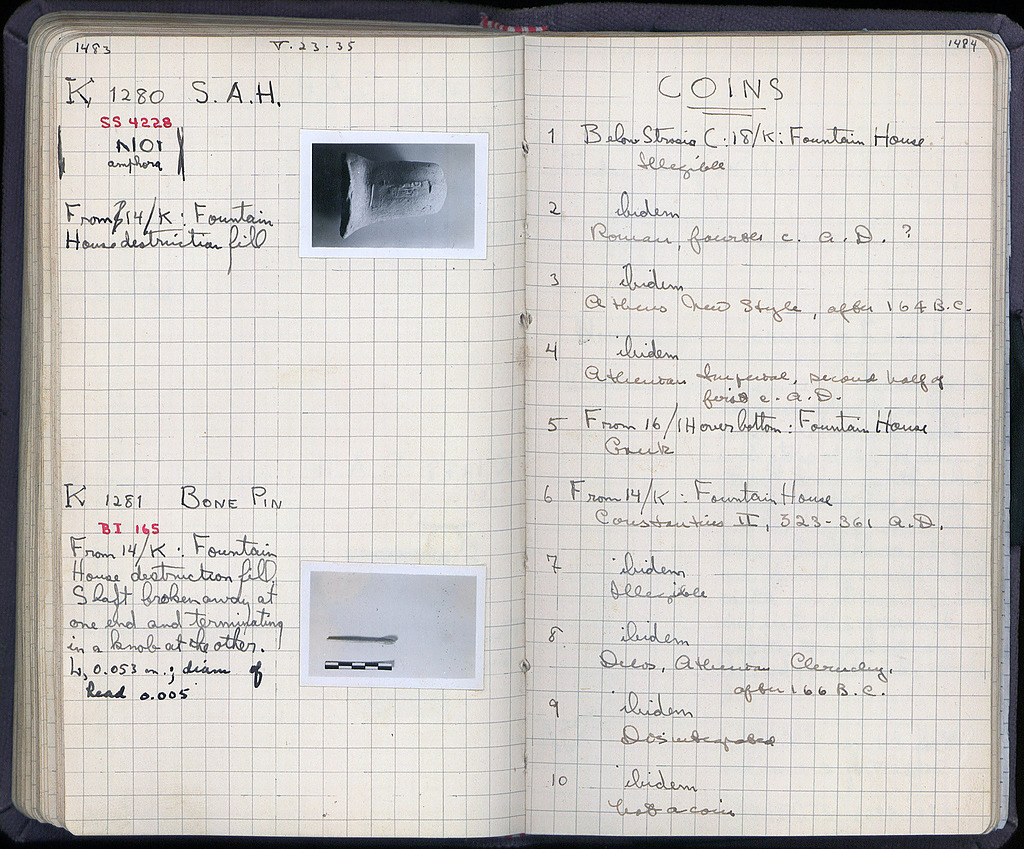 1483
V·23·35
K 1280 S.A.H.
SS 4228
ΝΙΟΙ
amphora
From 14/K: Fountain
House destruction fill
K 1281 BONE PIN
BI 165
From 14/K: Fountain
House destruction fill,
Shaft broken away at
one end and terminating
in a knob at the other.
L, 0.053 m.; diam of
head 0.005
1484
COINS
1 Below Strosis C:18/K: Fountain House
Illegible
2 ibidem
Roman, fourth c. A.D.?
3 ibidem
Athens New Style, after 164 B.C.
4 ibidem
Athenian Imperial, second half of
first c. A.D.
5 From 16/IH over bottom: Fountain House
Greek
6 From 14/K: Fountain House
Constantius II, 323-361 A.D.
7 ibidem
Illegible
8 ibidem
Delos, Athenian Cleruchy,
after 166 B.C.
9 ibidem
Disintegrated
10 ibidem
Not a coin